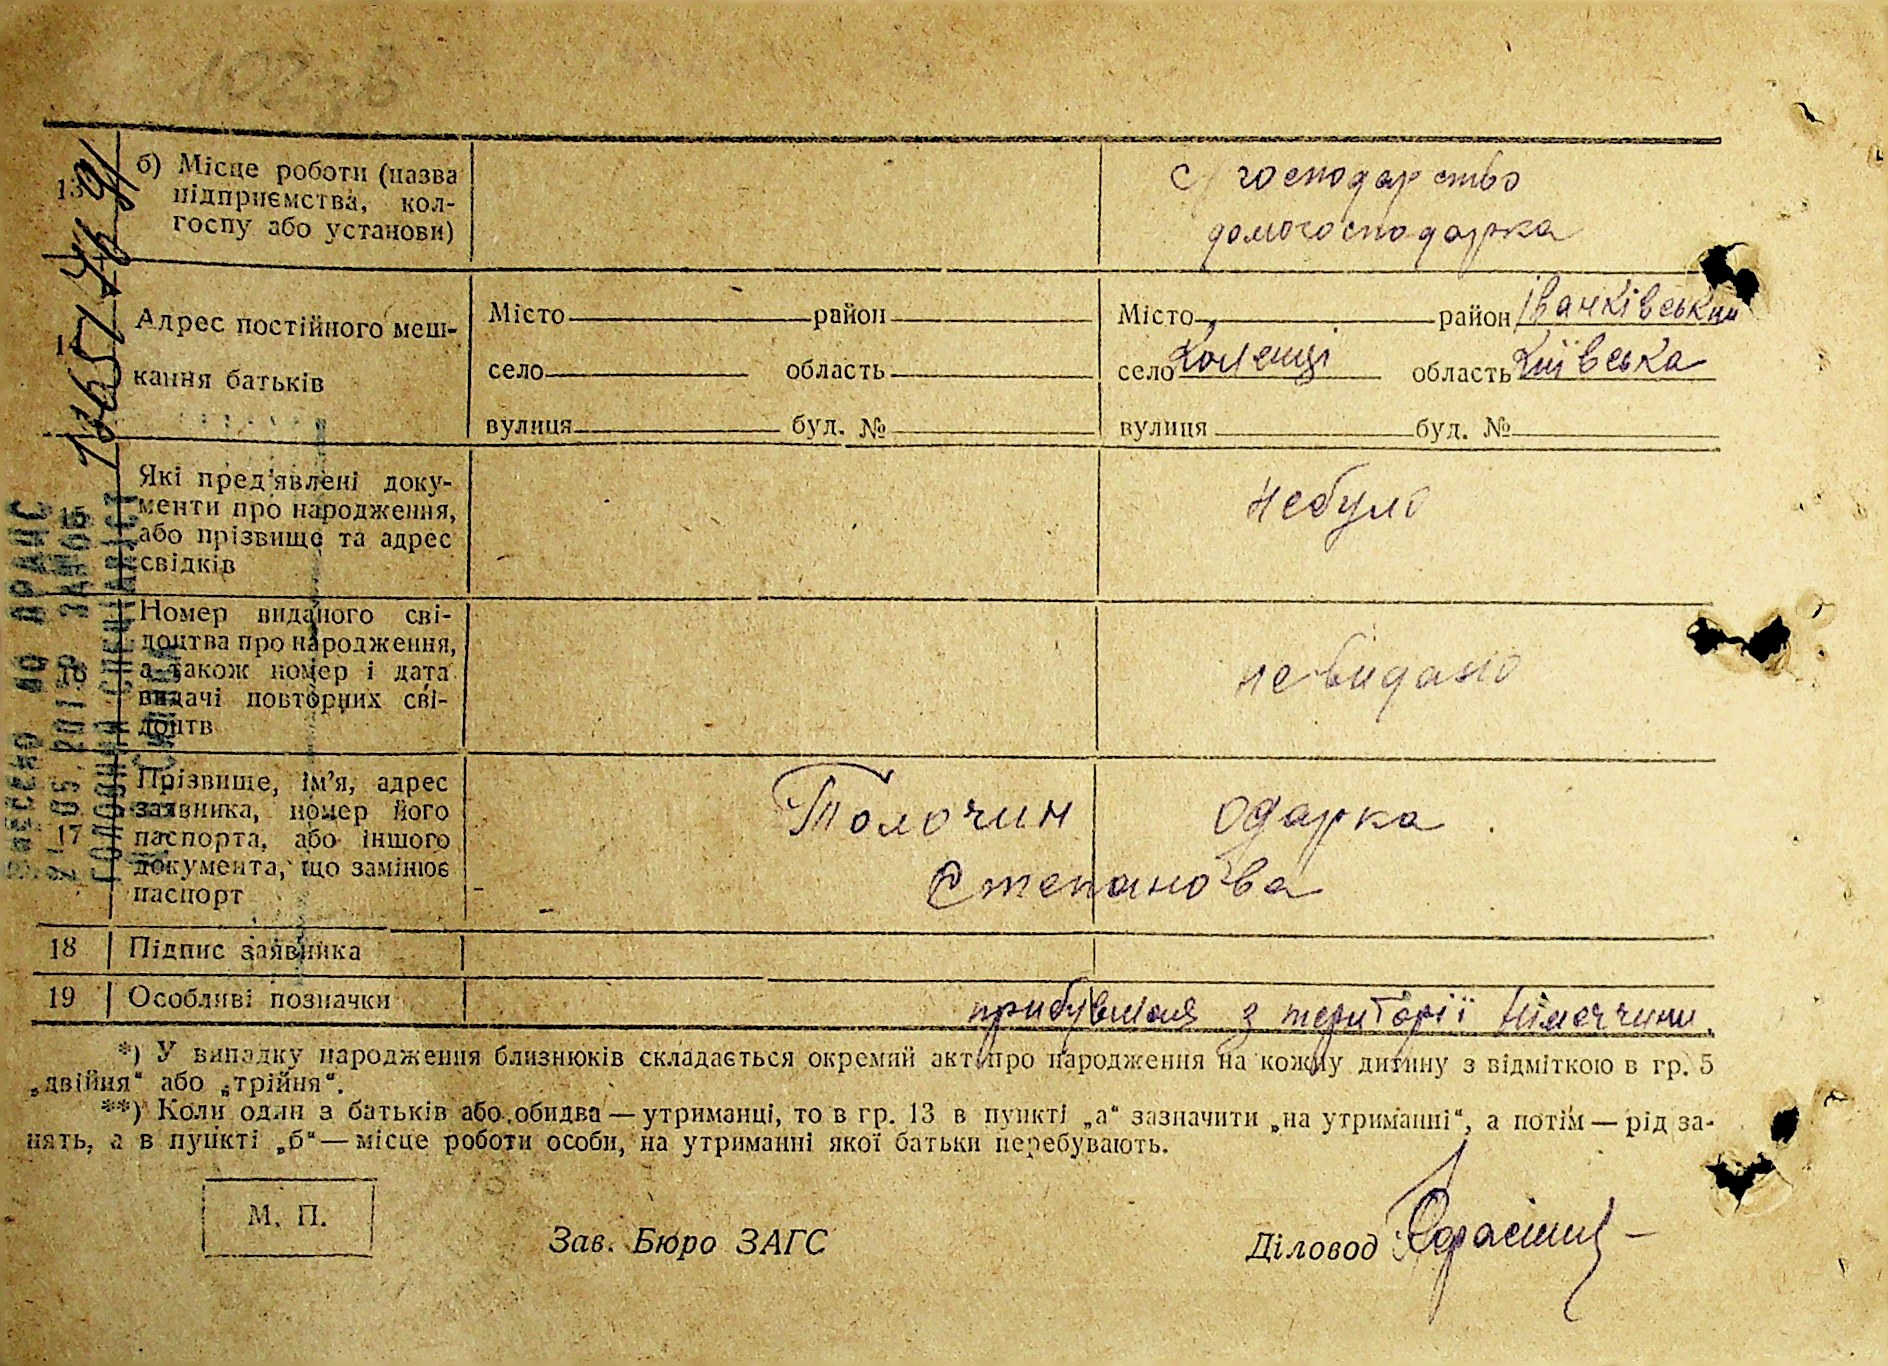 13 б) Місце роботи (назва
підприємства, кол-
госпу або установи)
с/господарство
домогосподарка
14 Адрес постійного меш-
кання батьків
Місто район Місто район Іванківський
село область село Коленці область Київська
вулиця буд. № вулиця буд. №
15 Які пред'явлені доку-
менти про народження,
або прізвище та адрес
свідків
небуло
16 Номер виданого сві-
доцтва про народження,
а також номер і дата
видачі повторних сві-
доцтв
невидано
17 Прізвище, ім'я, адрес
заявника, номер його
паспорта, або іншого
документа, що замінює
паспорт
Толочин Одарка
Степанова
18 Підпис заявника
19 Особливі позначки прибувшая з територіі Німеччини
*) У випадку народження близнюків складається окремий акт про народження на кожну дитину з відміткою в гр. 5
„двійня“ або „трійня“.
**) Коли один з батьків або обидва — утриманці, то в гр. 13 в пункті „а“ зазначити „на утриманні“, а потім — рід за-
нять, а в пункті „б“ — місце роботи особи, на утриманні якої батьки перебувають.
М. П.
Зав. Бюро ЗАГС
Діловод